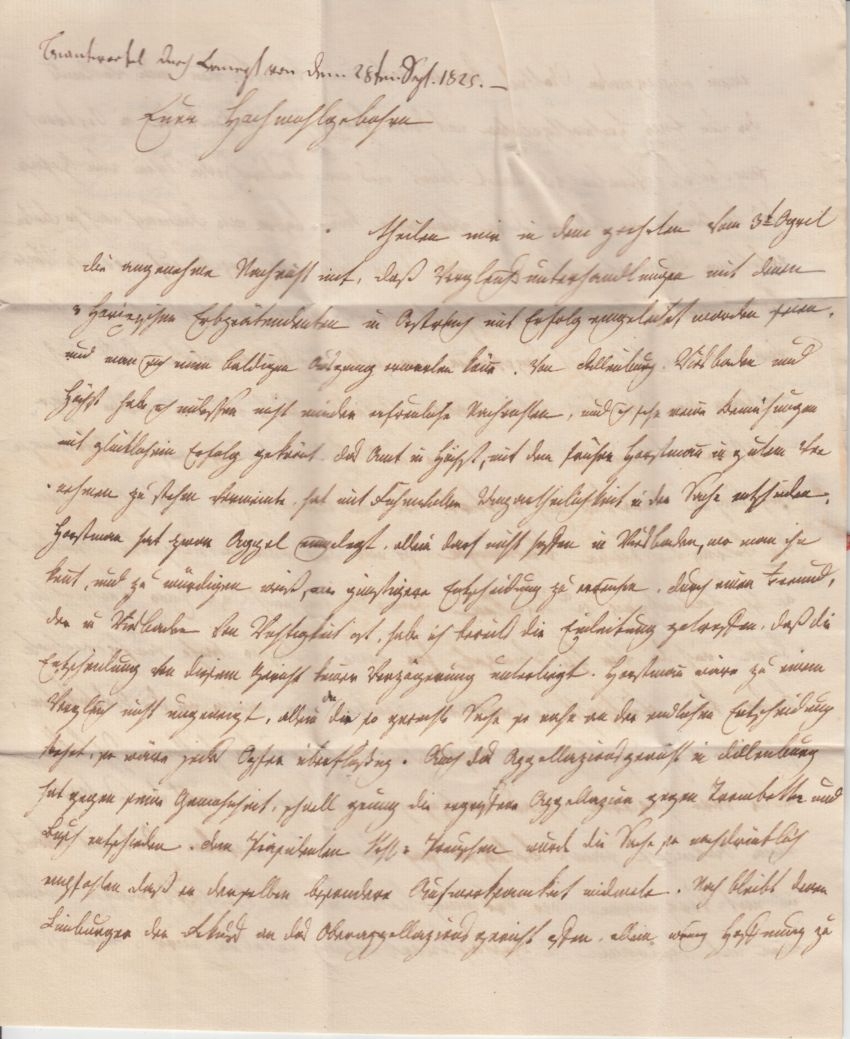 Beantwortet durch von dem 28ten Sept. 1825. —
Euer Hochwohlgebohrn
theilen mir in dem geehrten vom 3t April
die angenehme Nachricht mit, daß Vergleichsunterhandlungen mit denen
Erbprätendenten in Oestreich mit Erfolg eingeleitet worden seien,
und man sich einen baldigen Ausgang erwarten könne. Von Dillenburg, Wisbaden und
Höchst habe ich indessen nicht minder erfreuliche Nachrichten, und ich sehe meine Bemühungen
mit glücklichem Erfolg gekrönt. Das Amt in Höchst, mit dem früher Horstman in gutem Ver
nehmen zu stehen vermeinte, hat mit Unpartheilichkeit in der Sache entschieden.
Horstman hat zwar Appel eingelegt, allein darf nicht hoffen in Wisbaden, wo man ihn
kent, und zu würdigen weiß, eine günstigere Entscheidung zu erwirken. Durch einen Freund,
der in Wisbaden von Wichtigkeit ist, habe ich bereits die Einleitung getroffen, daß die
Entscheidung von diesem Gericht keiner Verzögerung unterliegt. Horstman wäre zu einem
Vergleich nicht ungeneigt, allein da die so gerechte Sache so nahe an der endlichen Entscheidung
stehet, so wäre jedes Opfer überflüssig. Auch das Appellazionsgericht in Dillenburg
hat gegen seine Gewohnheit, schnell genug die Appellazion gegen Trombetta und
Busch entschieden. Dem Präsidenten wurde die Sache so nachdrücklich
empfohlen daß er derselben besondere Aufmerksamkeit widmete. Noch bleibt denen
Limburger der Rekurs an das Oberappellazionsgericht offen, allein wenig Hoffnung zu